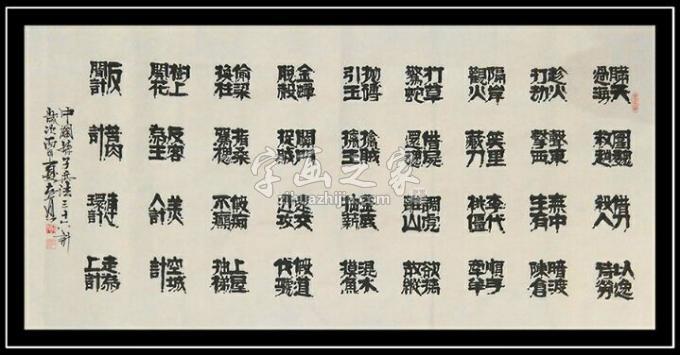 瞞天過海 圍魏救趙 借刀殺人 以逸待勞
趁火打劫 聲東擊西 無中生有 暗渡陳倉
隔岸觀火 笑里藏刀 李代桃僵 順手牽羊
打草驚蛇 借屍還魂 調虎離山 欲擒故縱
拋磚引玉 擒賊擒王 釜底抽薪 混水摸魚
金蟬脫殼 關門捉賊 遠交近攻 假道伐虢
偷梁換柱 指桑罵槐 假痴不癲 上屋抽梯
樹上開花 反客為主 美人計 空城計
反間計 苦肉計 連環計 走為上計
中國孫子兵法三十六計
歲次 酉夏
字画之家
zihuazhijia.com